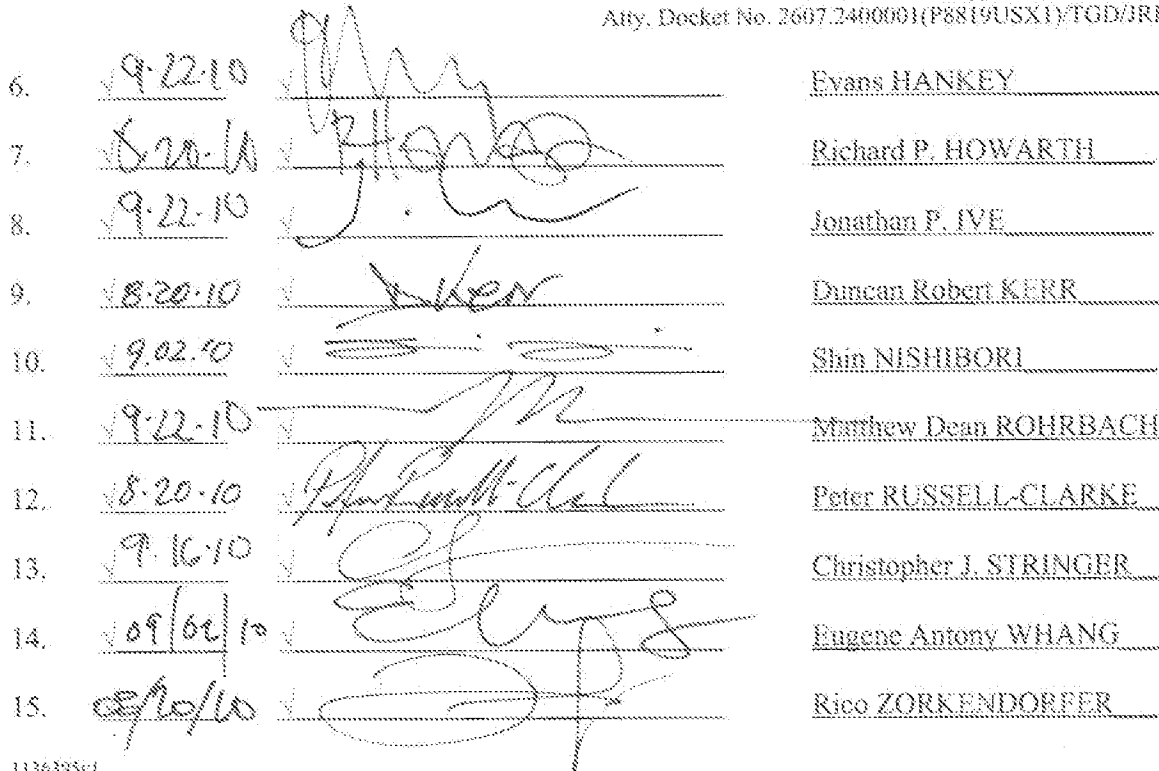 Atty. Docket No. 2607.2400001(P8819USX1)/TGD/JRI
6. √ 9·22·10 √ Evans HANKEY
7. √ 8·20·10 √ Richard P. HOWARTH
8. √ 9·22·10 √ Jonathan P. IVE
9. √ 8·20·10 √ Duncan Robert KERR
10. √ 9.02.10 √ Shin NISHIBORI
11. √ 9·22·10 √ Matthew Dean ROHRBACH
12. √ 8·20·10 √ Peter RUSSELL-CLARKE
13. √ 9·16·10 √ Christopher J. STRINGER
14. √ 09/02/10 √ Eugene Antony WHANG
15. 08/20/10 √ Rico ZORKENDORFER